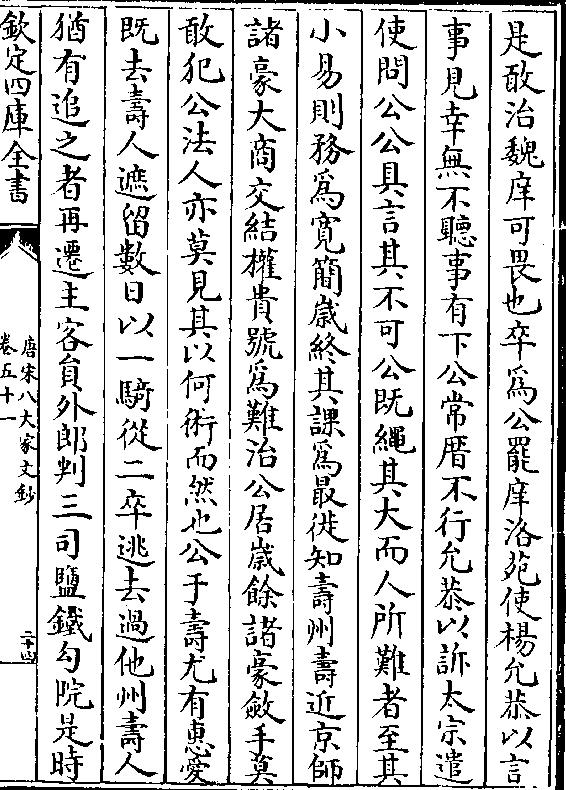 是敢治魏庠可畏也卒爲公罷庠洛苑使楊允恭以言
事見幸無不聽事有下公常厝不行允恭以訴太宗遣
使問公公具言其不可公既繩其大而人所難者至其
小易則務爲寛簡嵗終其課爲最徙知壽州壽近京師
諸豪大商交結權貴號爲難治公居嵗餘諸豪斂手莫
敢犯公法人亦莫見其以何術而然也公于壽尤有惠愛
既去壽人遮留數日以一騎從二卒逃去過他州壽人
猶有追之者再遷主客員外郎判三司鹽鐵勾院是時
欽定四庫全書
唐宋八大家文鈔
卷五十一
二十四